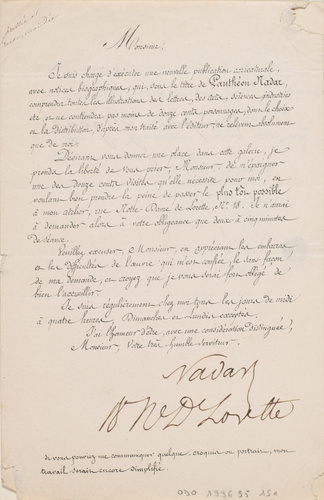 Monsieur,
Je suis chargé d'exécuter une nouvelle publication caricaturale,
avec notices biographiques, qui, sous le titre de Panthéon Nadar,
comprendra toutes les illustrations des lettres, des arts, sciences, industries
etc et ne contiendra pas moins de douze cents personnages, dont le choix
et la distribution, d'après mon traité avec l'éditeur, ne relèvent absolument
que de moi.
Désirant vous donner une place dans cette galerie, je
prends la liberté de vous prier, Monsieur, de m'épargner
une des douze cents visites qu'elle nécessite pour moi, en
voulant bien prendre la peine de passer le plus tôt possible
à mon atelier, rue Notre-Dame de Lorette No 18. Je n'aurai
à demander alors à votre obligeance que deux à cinq minutes
de séance.
Veuillez excuser, Monsieur, en appréciant les embarras
et les difficultés de l'œuvre qui m'est confiée, le sans façon
de ma demande, et croyez que je vous serai fort obligé de
bien l'accueillir.
Je suis régulièrement chez moi tous les jours de midi
à quatre heures, Dimanches et Lundis exceptés.
J'ai l'honneur d'être, avec une considération distinguée,
Monsieur, Votre très humble serviteur.
Nadar
18 N. De Lorette
Si vous pouviez me communiquer quelque croquis ou portrait, mon
travail serait encore simplifié.